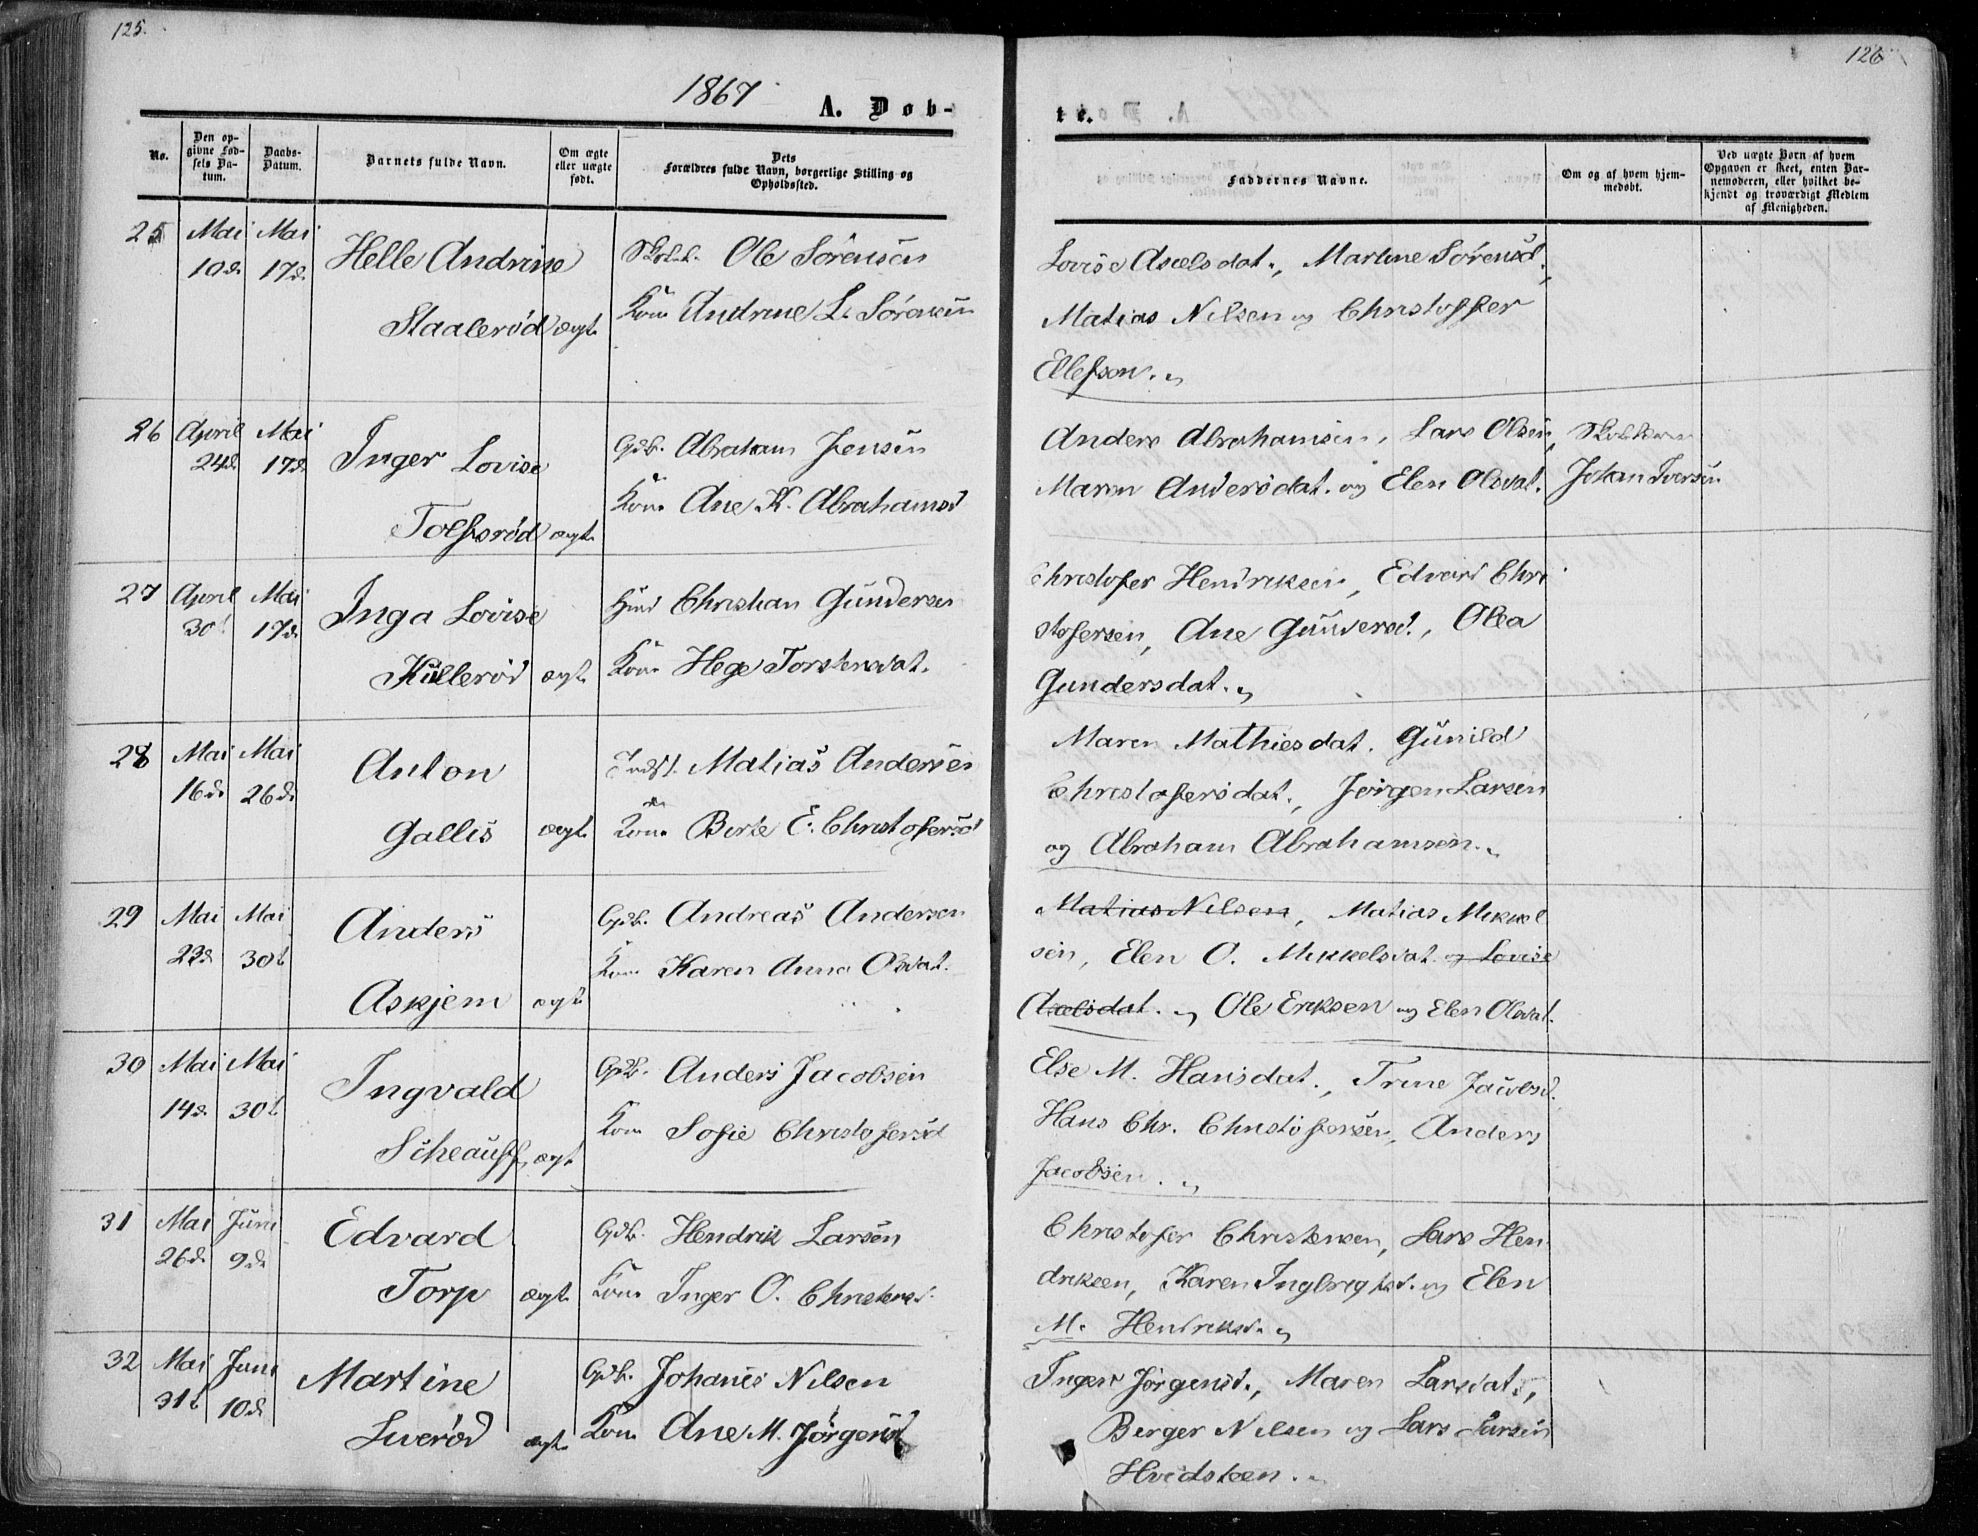 125.
126
1867
A. Døb-
te.
No.
Den opgivne Fødsels Datum.
Daabs-Datum.
Barnets fulde Navn.
Om ægte eller uægte født.
Dets Forældres fulde Navn, borgerlige Stilling og Opholdssted.
Faddernes Navne.
Om og af hvem hjemmedøbt.
Ved uægte Børn af hvem Opgaven er skeet, enten Barnemoderen, eller hvilket bekjendt og troværdigt Medlem af Menigheden.
25 Mai 10de Mai 17de Helle Andrine
Staalerød ægte
Ole Sørensen
Kone Andrine L. Sørensen
Lovise Axelsdat., Martine Sørensd.,
Matias Nilsen og Christoffer
Ellefson.
26 April 24de Mai 17de Inger Lovise
Tolfsrød ægte
Gdb. Abraham Jensen
Kone Ane K. Abrahamsd
Anders Abrahamsen, Lars Olsen,
Maren Andersdat. og Elen Olsdat.
Johan Iversen
27 April 30te Mai 17de Inga Lovise
Kullerød ægte
Christian Gundersen
Kone Hege Torstensdat.
Christofer Hendriksen, Edvard Chri
stofersen, Ane Gundersd., Olea
Gundersdat.
28 Mai 16de Mai 26de Anton
Gallis ægte
Indst. Matias Andersen
Kone Berte E. Christofersd
Maren Mathiesdat. Gunild
Christofersdat., Jørgen Larsen
og Abraham Abrahamsen.
29 Mai 22de Mai 30te Anders
Askjem ægte
Gdb. Andreas Andersen
Kone Karen Anna Olsdat.
Matias Nilsen, Matias Mikkel
sen, Elen O. Mikkelsdat. og Lovise
Axelsdat. Ole Eriksen og Elen Olsdat.
30 Mai 14de Mai 30te Ingvald
Scheauff ægte
Gdb. Anders Jacobsen
Kone Sofie Christofersd
Else M. Hansdat., Trine Jacobsd.
Hans Chr. Christofersen, Anders
Jacobsen.
31 Mai 26de Juni 9de Edvard
Torp ægte
Gdb. Hendrik Larsen
Kone Inger O. Christensd.
Christofer Christensen, Lars Hen
driksen, Karen Ingbregtsd. og Elen
M. Hendriksd.
32 Mai 31te Juni 10de Martine
Liverød ægte
Gdb. Johanes Nilsen
Kone Ane M. Jörgensd
Inger Jörgensd., Maren Larsdat.,
Berger Nilsen og Lars Larsen
Hvidsteen.